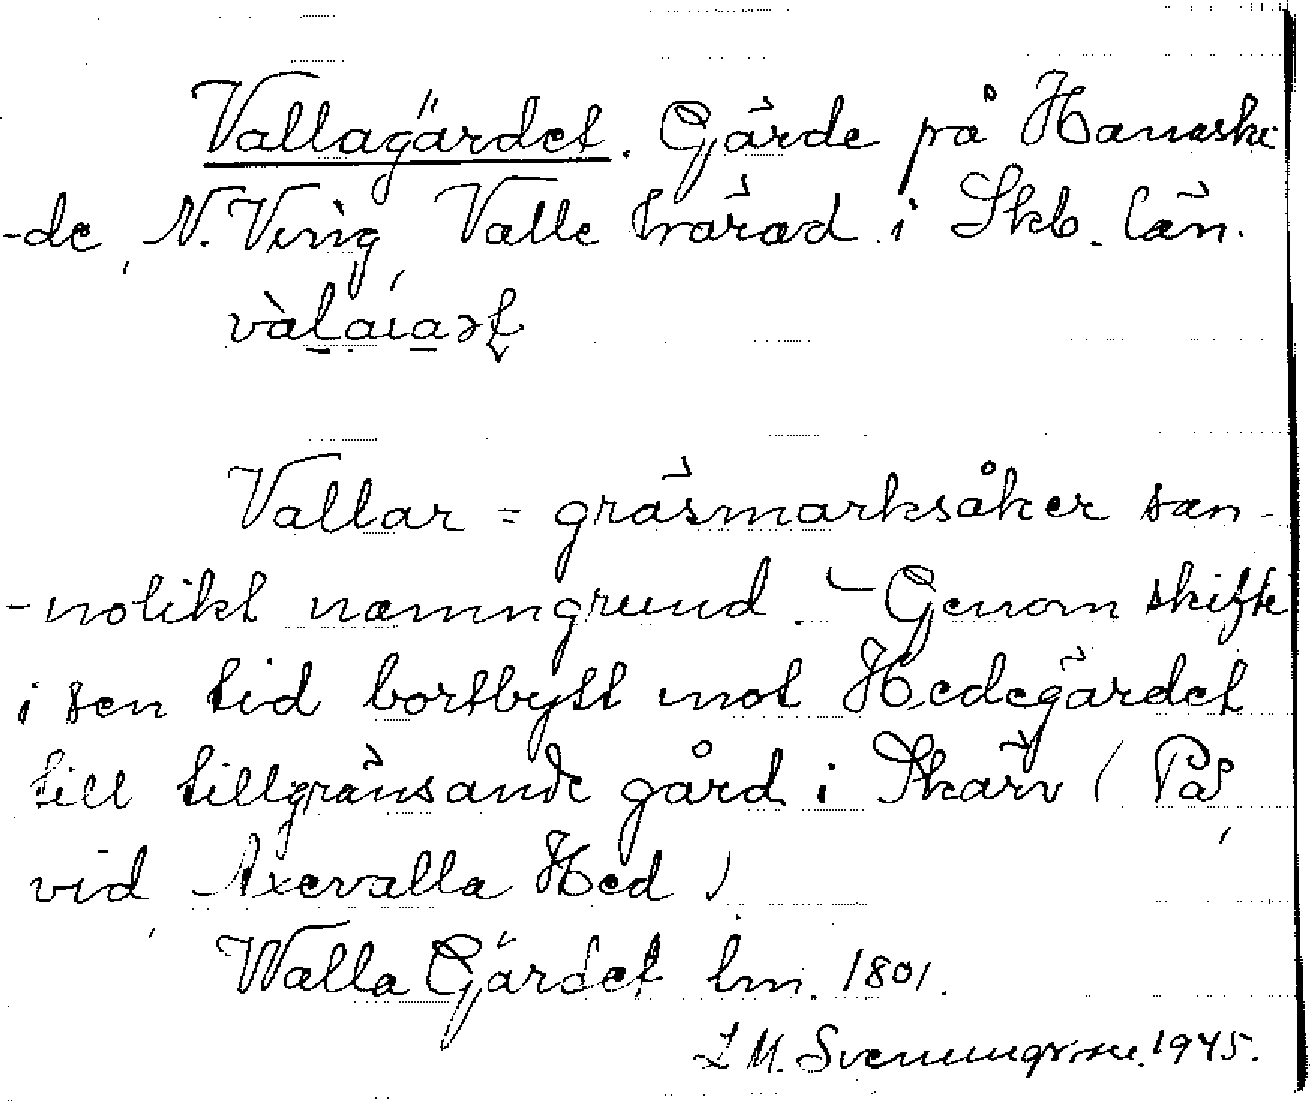 Vallagärdet. Gärde på Hanaske
-de, N. Ving, Valle härad i Skb. län.
Vallar = gräsmarksåker san-
-nolikt namngrund. - Genom skifte
i sen tid bortbytt mot Hedegärdet
till tillgränsande gård i Skärv (På
vid Axevalla Hed)
Walla Gärdet lm. 1801.
I. M. Svenungsson. 1945.